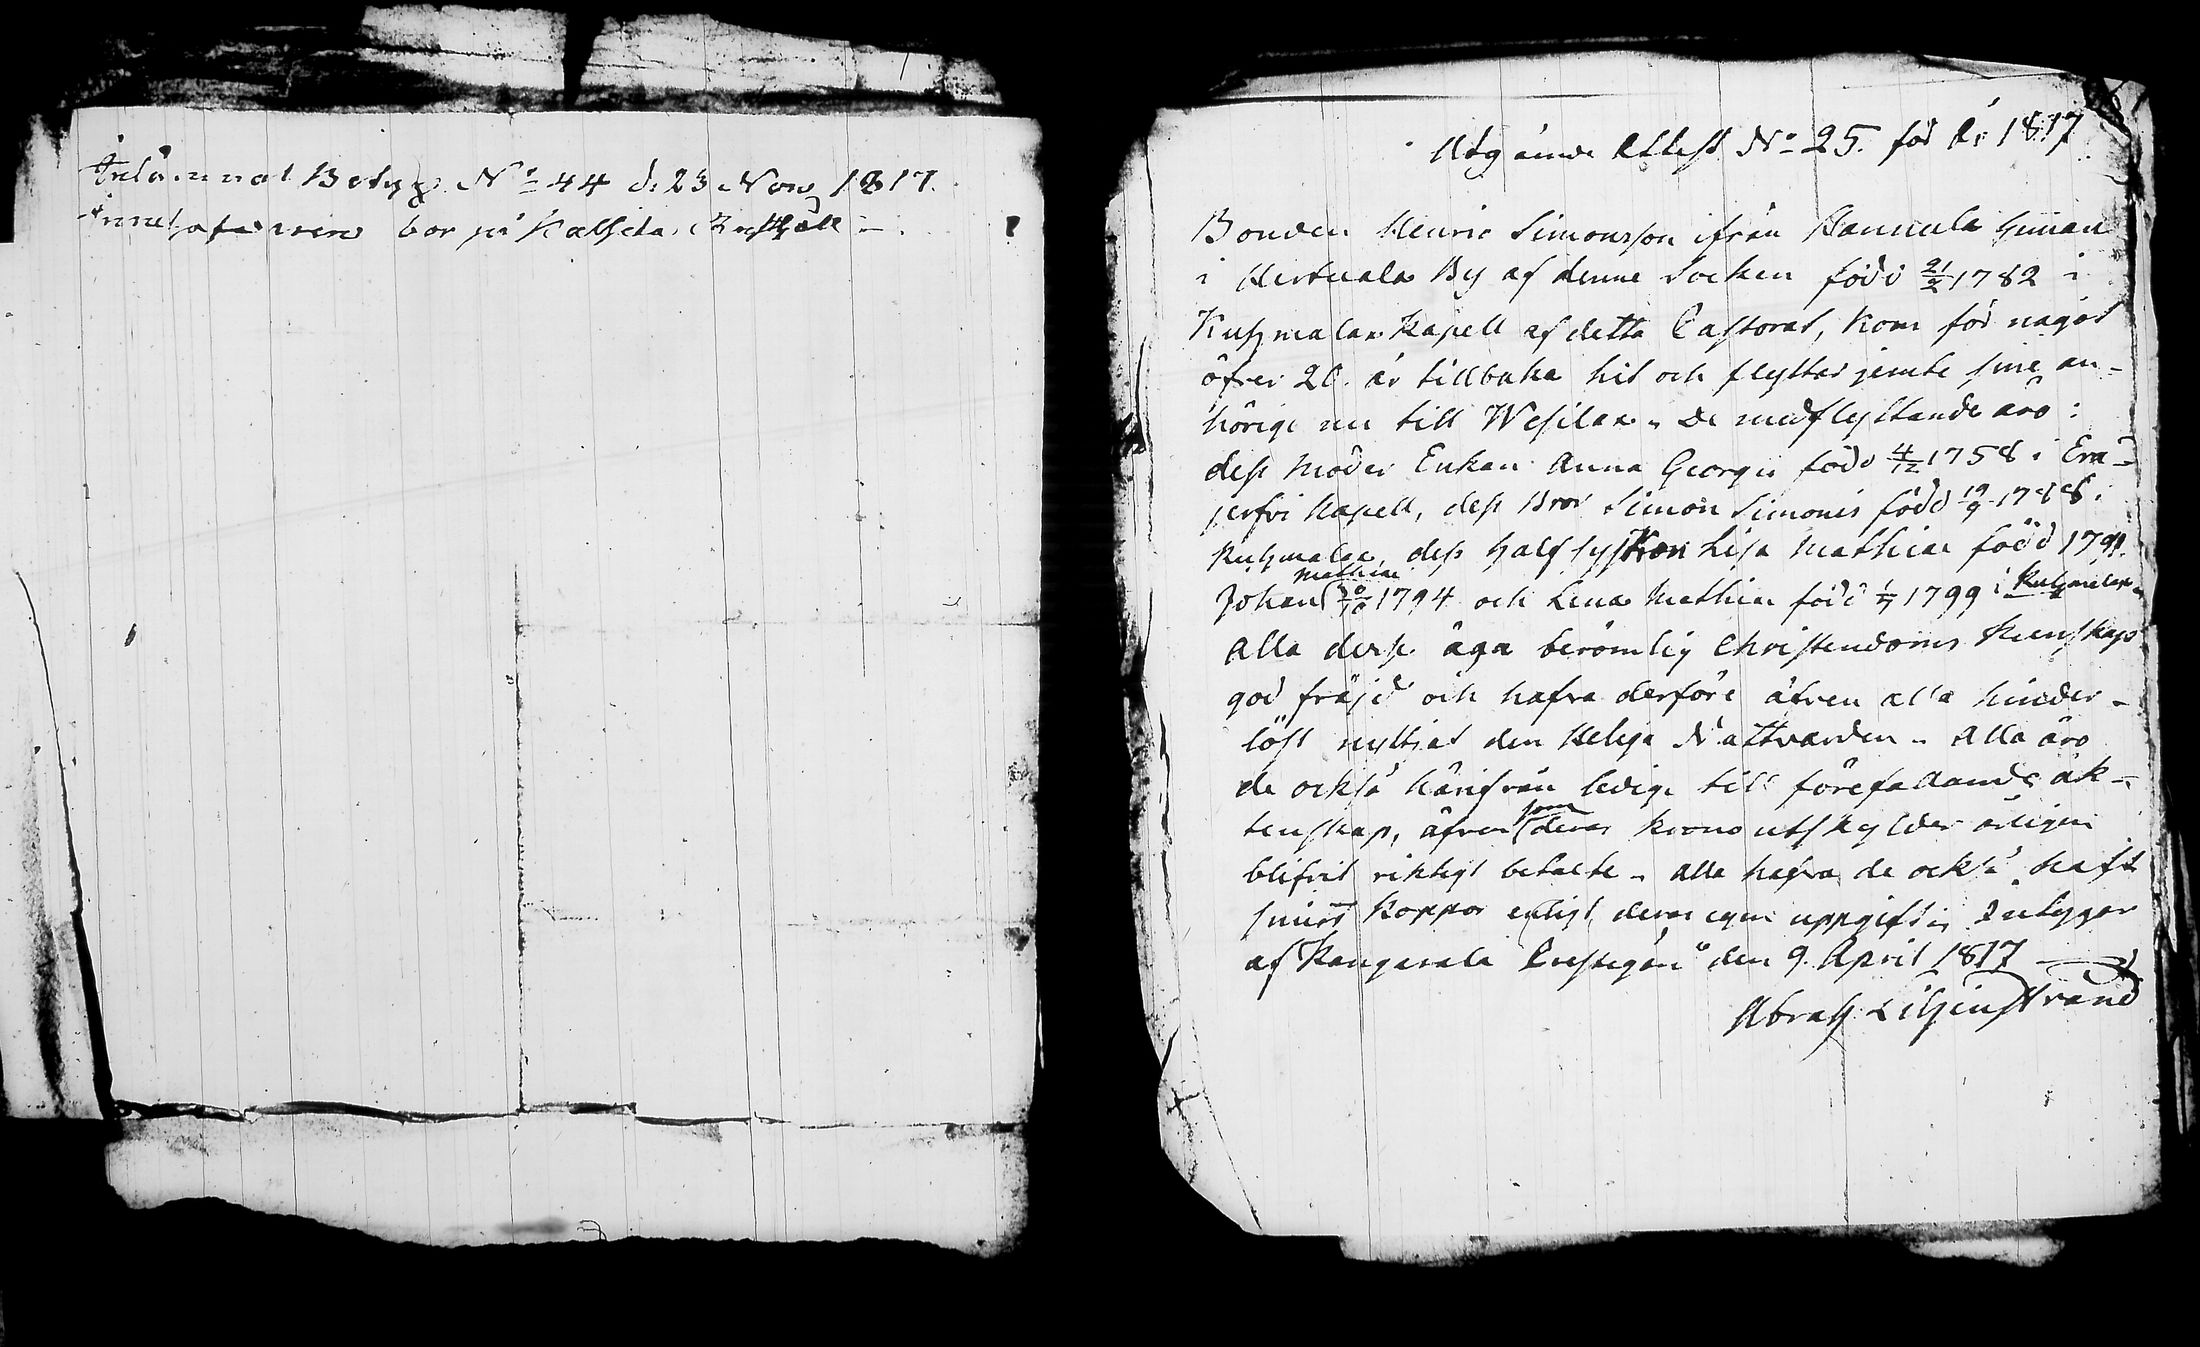 Inlämnat Betyg N:o 44 d. 23 Nov 1817.
Innehafvaren bor på Kalseta Rusthåll
Utgående Attest N:o 25. för År 1817
Bonden Henric Simonsson ifrån Hannula heman
i Hertuala By af denne Socken född 21/2 1782 i
Kuhmalax Kapell af detta Pastorat, kom för något
öfver 20. år tillbaka hit och flyttar jemte sine an-
hörige nu till Wesilax. De medflyttande äro:
dess moder Enkan Anna Georgii född 4/12 1758 i Erä-
jerfvi Kapell, dess Bror Simon Simonis född 19/9 1788 i
Kuhmalax, dess halfsyskon Lisa Mathiae född 1791.
Johan Mathiae 20/10 1794 och Lena Mathiae född 1/7 1799 i Kuhmalax
Alla desse äga berömlig Christendoms kunskap
god fräjd och hafva derföre äfven alla hinder-
löst nyttjat den Heliga Nattvarden. Alla äro
de också härifrån ledige till förefallande äk-
tenskap, äfven som deras kronoutskylder årligen
blifvit riktigt betalte. Alla hafva de också haft
smitt koppor enligt deras egen uppgift, intygar
af Kangasala Prestegård den 9. April 1817
Abrah Liljenstrand